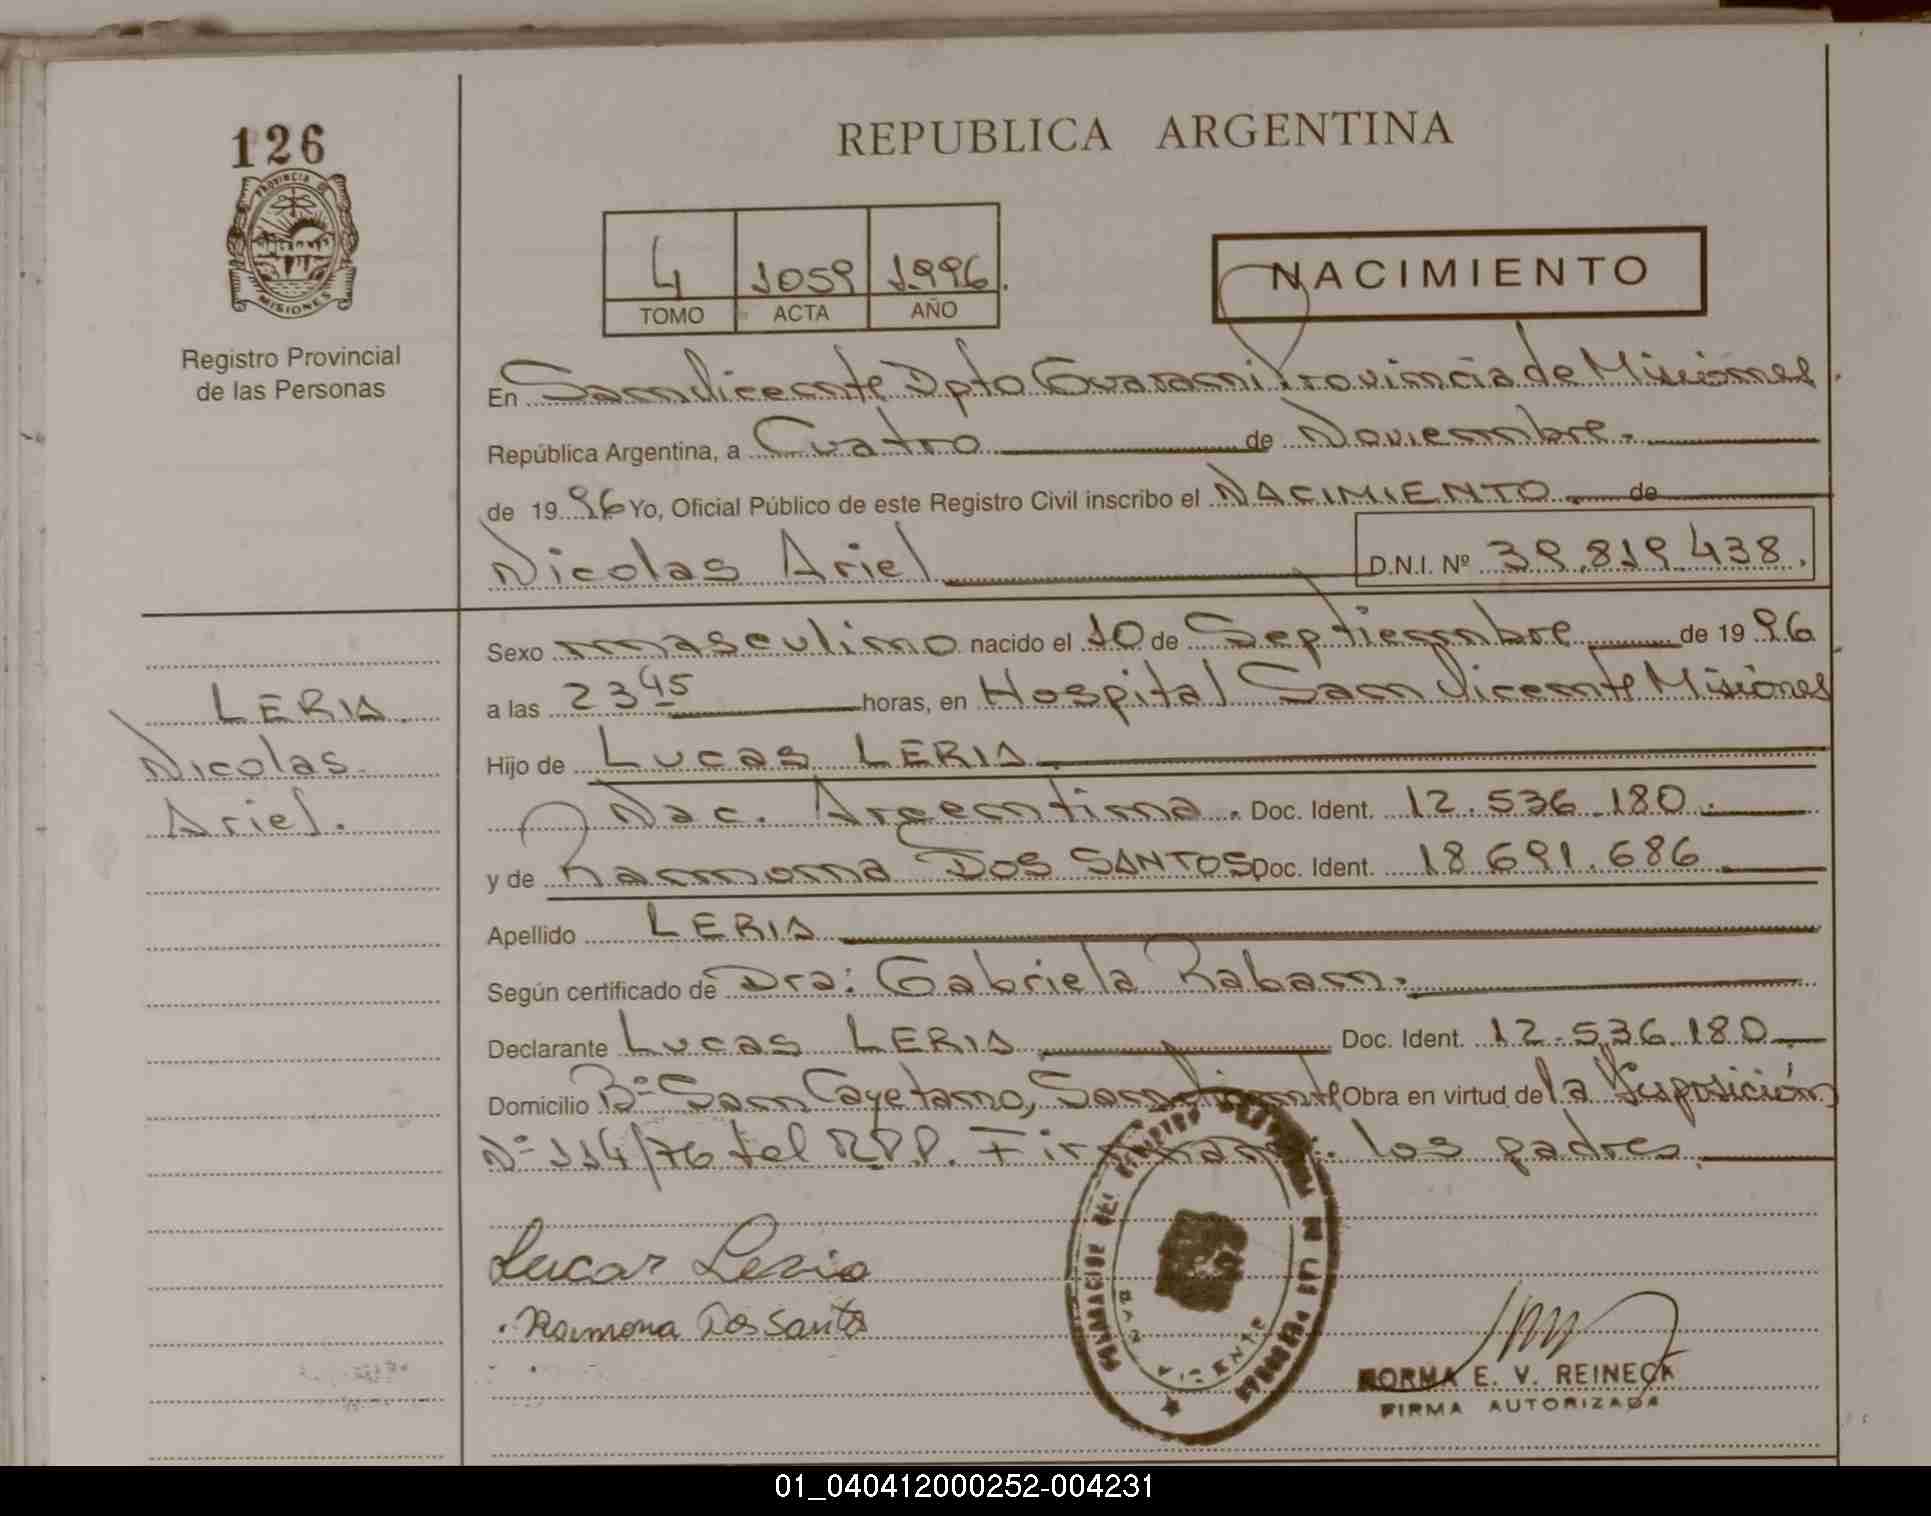 126
PROVINCIA DE
MISIONES
Registro Provincial
de las Personas
REPUBLICA ARGENTINA
4 1059 1996.
TOMO ACTA AÑO
NACIMIENTO
En San Vicente Dpto Guarani Provincia de Misiones.
República Argentina, a Cuatro de Noviembre.
de 19 96 Yo, Oficial Público de este Registro Civil inscribo el NACIMIENTO. de
Nicolas Ariel D.N.I. Nº 39.819.438.
Sexo masculino nacido el 10 de Septiembre de 19 96
a las 23 45 horas, en Hospital San Vicente Misiones
Hijo de Lucas LERIA.
Nac. Argentina. Doc. Ident. 12.536.180.
y de Ramona DOS SANTOS Doc. Ident. 18.691.686
Apellido LERIA
Según certificado de Dra: Gabriela Raban.
Declarante Lucas LERIA Doc. Ident. 12.536.180
Domicilio Bº San Cayetano, San Vicente Obra en virtud de la Disposición
Nº 114/76 del R.P.P. Firman: los padres.
LERIA.
Nicolas
Ariel.
Lucas Leria
Ramona Dos Santos
SAN VICENTE
NORMA E. V. REINECK
FIRMA AUTORIZADA
01_040412000252-004231